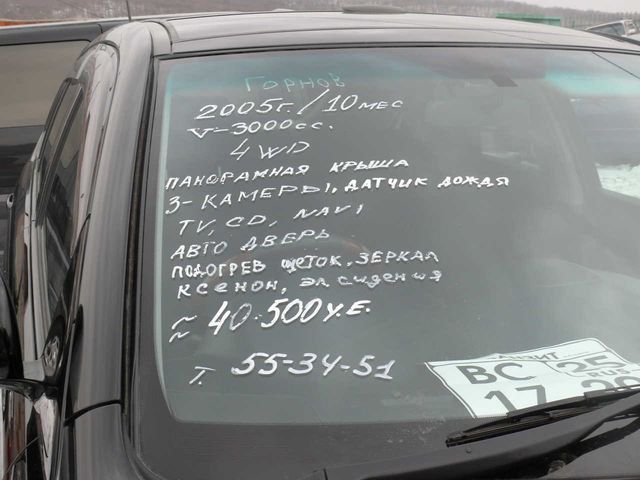 ГОРНОВ
2005г./10 мес
V-3000cc.
4 WD
ПАНОРАМНАЯ КРЫША
3-КАМЕРЫ, ДАТЧИК ДОЖДЯ
TV, CD, NAVI
АВТО ДВЕРЬ
ПОДОГРЕВ ЩЕТОК, ЗЕРКАЛ
КСЕНОН, ЭЛ СИДЕНИЯ
~ 40.500 У.Е.
Т. 55-34-51
ТРАНЗИТ
ВС 25
RUS
17